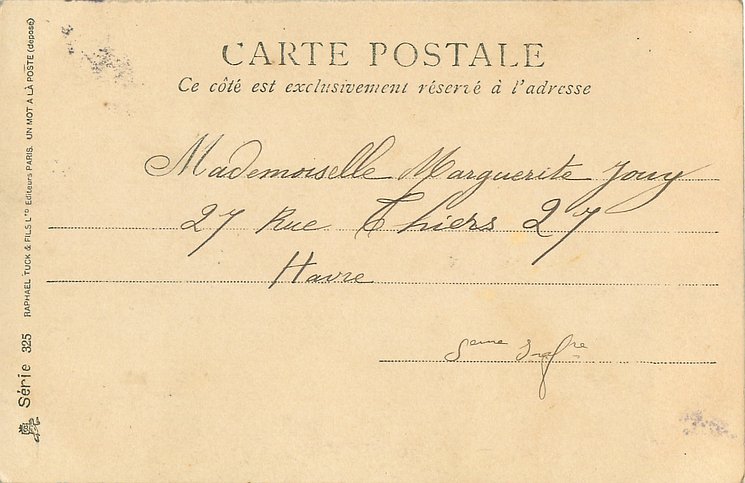 CARTE POSTALE
Ce côté est exclusivement réservé à l'adresse
Mademoiselle Marguerite Jouy
27 Rue Thiers 27
Havre
Seine Infre
Série 325 RAPHAEL TUCK & FILS LTD Editeurs PARIS. UN MOT A LA POSTE (déposé)